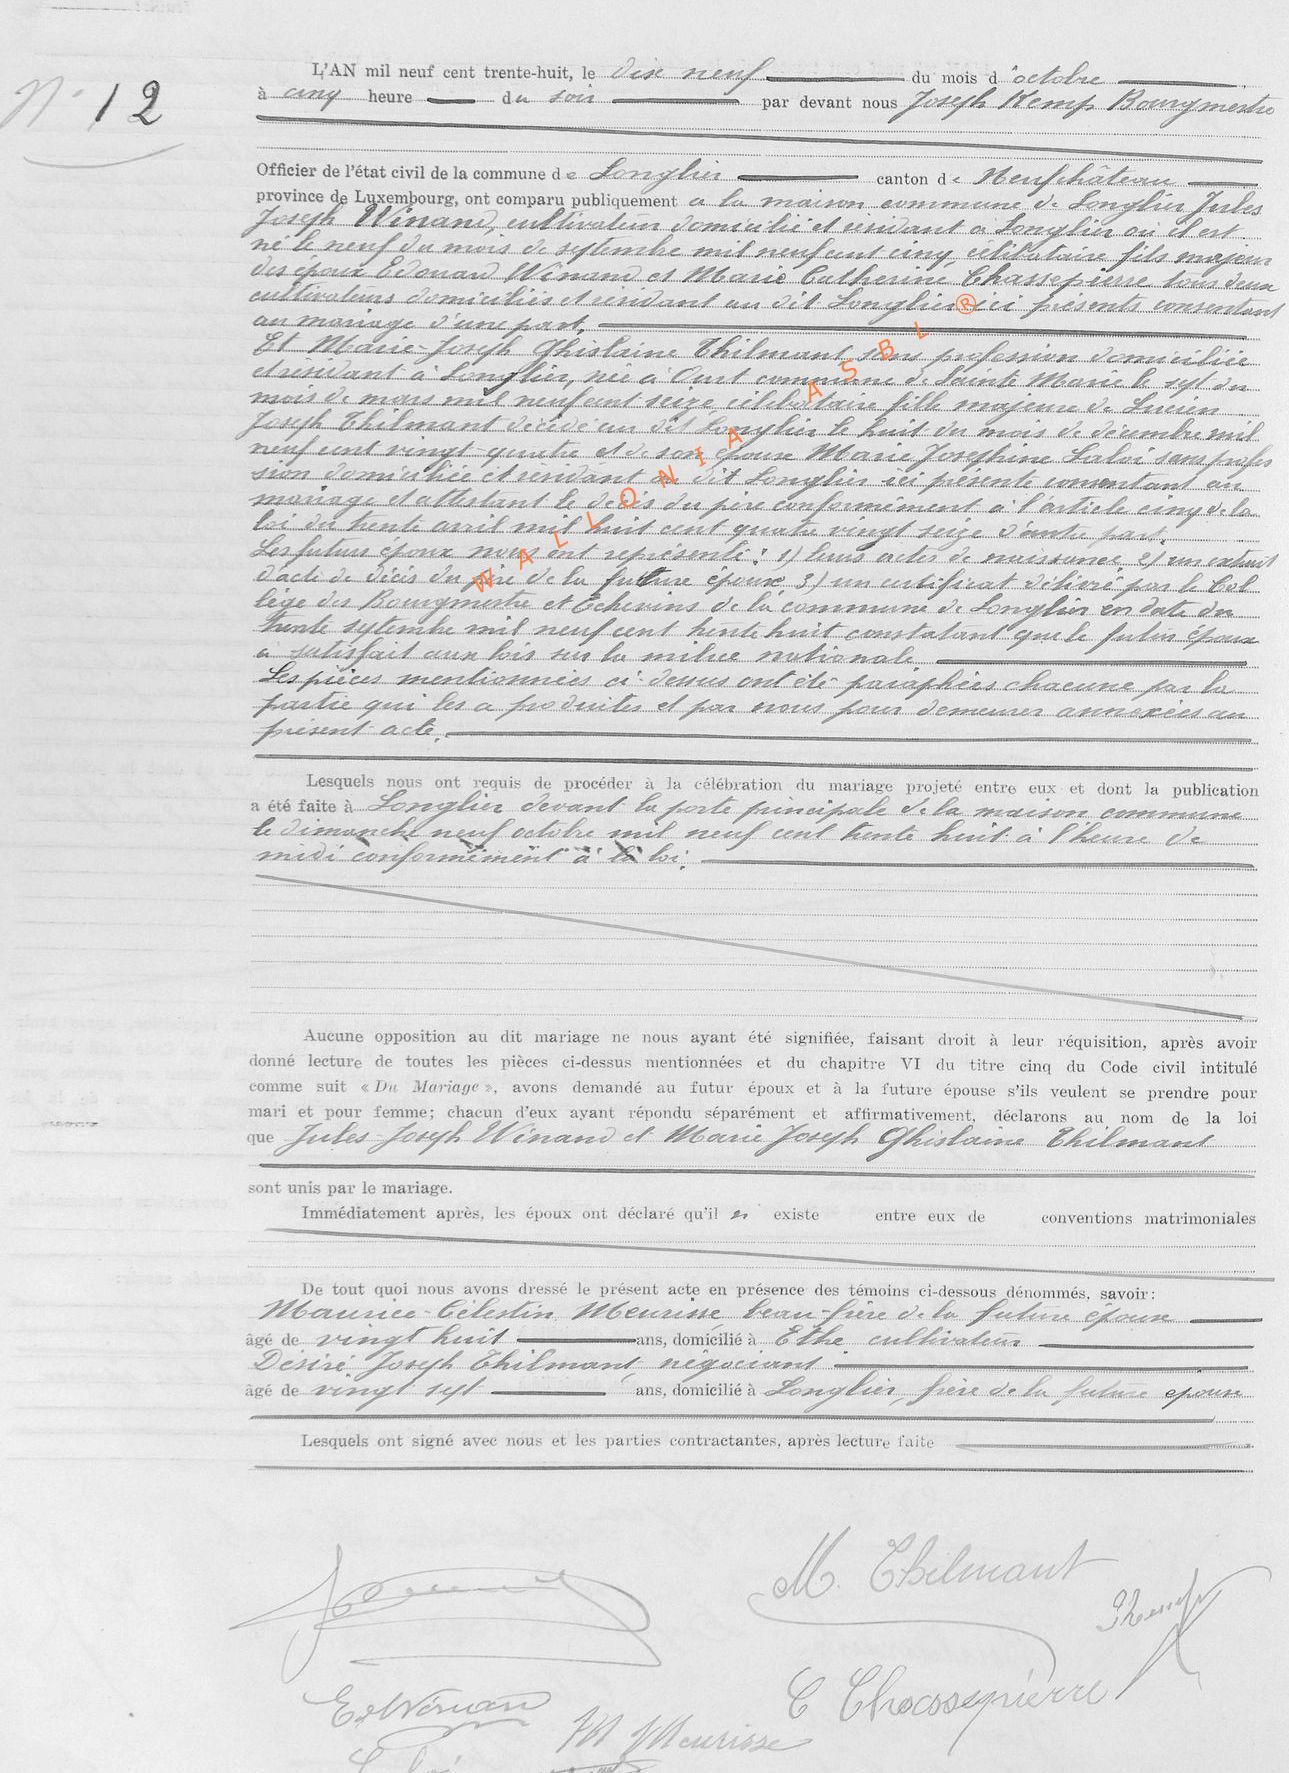 N° 12
L'AN mil neuf cent trente-huit, le dix neuf du mois d'octobre
à cinq heure du soir par devant nous Joseph Kemp Bourgmestre
Officier de l'état civil de la commune de Longlier canton de Neufchâteau
province de Luxembourg, ont comparu publiquement a la maison commune de Longlier Jules
Joseph Winand, cultivateur domicilié et résidant à Longlier où il est
né le neuf du mois de septembre mil neuf cent cinq célibataire fils majeur
des époux Edouard Winand et Marie Catherine Chassepierre tous deux
cultivateurs domiciliés et résidant au dit Longlier ici présents consentant
au mariage d'une part.
Et Marie-Joseph Ghislaine Thilmant sans profession domiciliée
et résidant à Longlier, née à Ourt commune de Sainte Marie le sept du
mois de mars mil neuf cent seize célibataire fille majeure de Lucien
Joseph Thilmant décédé au dit Longlier le huit du mois de décembre mil
neuf cent vingt quatre et de son épouse Marie Josephine Laloi sans profes
sion domiciliée et résidant au dit Longlier ici présente consentant au
mariage et attestant le décès du père conformément à l'article cinq de la
loi du trente avril mil huit cent quatre vingt seize d'autre part.
Les futurs époux nous ont représenté : 1) leurs actes de naissance 2) un extrait
d'acte de décès du père de la future épouse 3) un certificat délivré par le Col
lège des Bourgmestre et Echevins de la commune de Longlier en date du
trente septembre mil neuf cent trente huit constatant que le futur époux
a satisfait aux lois sur la milice nationale
Les pièces mentionnées ci-dessus ont été paraphées chacune par la
partie qui les a produites et par nous pour demeurer annexées au
présent acte.
WALLONIA ASBL ®
Lesquels nous ont requis de procéder à la célébration du mariage projeté entre eux et dont la publication
a été faite à Longlier devant la porte principale de la maison commune
le dimanche neuf octobre mil neuf cent trente huit à l'heure de
midi conformément à la loi.
Aucune opposition au dit mariage ne nous ayant été signifiée, faisant droit à leur réquisition, après avoir
donné lecture de toutes les pièces ci-dessus mentionnées et du chapitre VI du titre cinq du Code civil intitulé
comme suit « Du Mariage », avons demandé au futur époux et à la future épouse s'ils veulent se prendre pour
mari et pour femme; chacun d'eux ayant répondu séparément et affirmativement, déclarons au nom de la loi
que Jules-Joseph Winand et Marie Joseph Ghislaine Thilmant
sont unis par le mariage.
Immédiatement après, les époux ont déclaré qu'il n' existe entre eux de conventions matrimoniales
De tout quoi nous avons dressé le présent acte en présence des témoins ci-dessous dénommés, savoir:
Maurice-Célestin Meurisse beau-frère de la future épouse
âgé de vingt huit ans, domicilié à Ethe cultivateur
Désiré Joseph Thilmant, négociant
âgé de vingt sept ans, domicilié à Longlier, frère de la future épouse
Lesquels ont signé avec nous et les parties contractantes, après lecture faite
M. Thilmant
E. Winand
C Chassepierre
M Meurisse